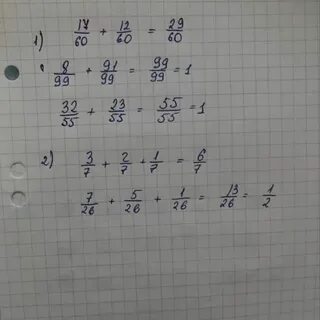 1) 17/60 + 12/60 = 29/60
8/99 + 91/99 = 99/99 = 1
32/55 + 23/55 = 55/55 = 1
2) 3/7 + 2/7 + 1/7 = 6/7
7/26 + 5/26 + 1/26 = 13/26 = 1/2